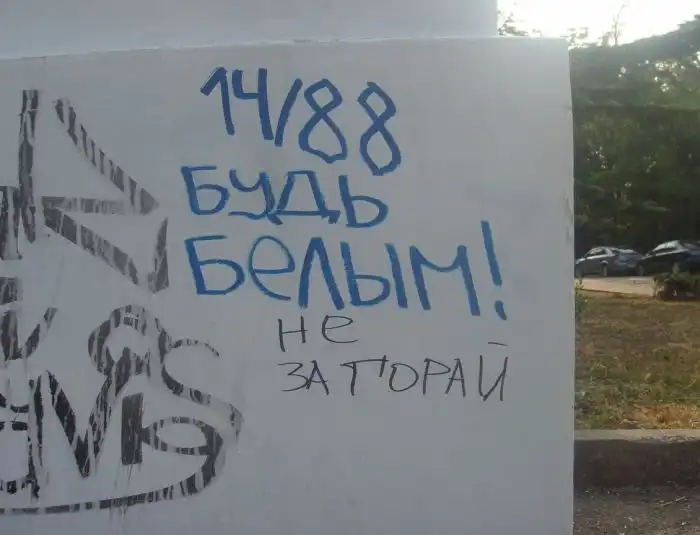 14/88
БУДЬ
БеЛЫМ!
Не
ЗАГОРАЙ